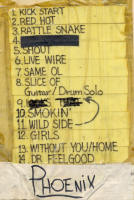 1. KICK START
2. RED HOT
3. RATTLE SNAKE
4.
5. SHOUT
6. LIVE WIRE
7. SAME OL
8. SLICE OF
Guitar/Drum Solo
9.
10. SMOKIN'
11. WILD SIDE
12. GIRLS
13. WITHOUT YOU/HOME
14. DR. FEELGOOD
PHOENIX